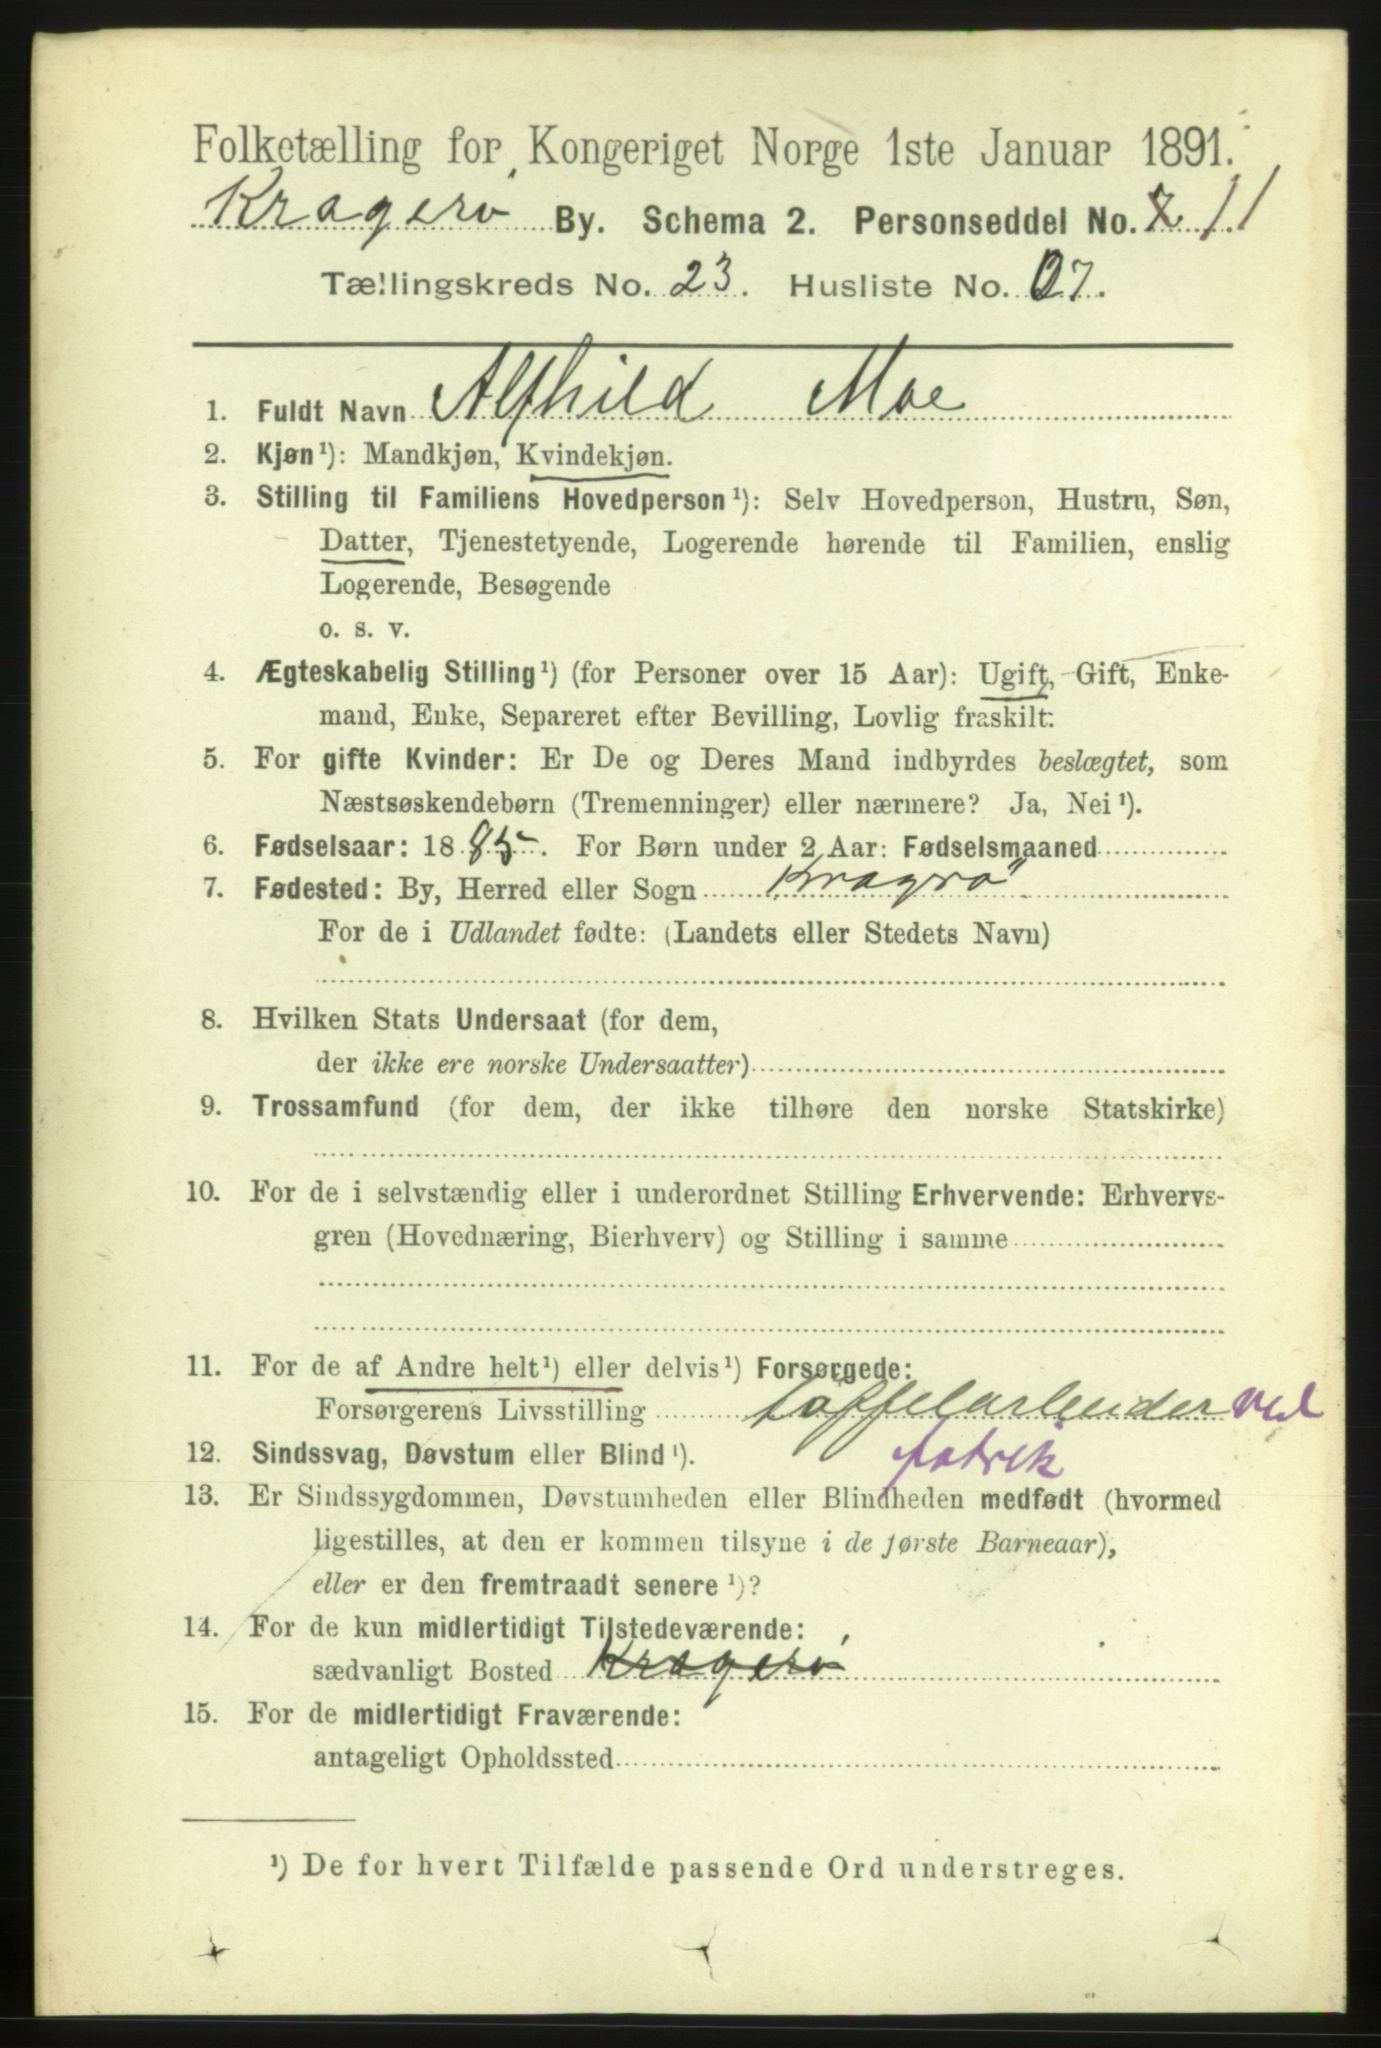 Folketælling for Kongeriget Norge 1ste Januar 1891.
Kragerø By. Schema 2. Personseddel No. 11
Tællingskreds No. 23. Husliste No. 07.
1. Fuldt Navn Alfhild Moe
2. Kjøn¹): Mandkjøn, Kvindekjøn.
3. Stilling til Familiens Hovedperson¹): Selv Hovedperson, Hustru, Søn,
Datter, Tjenestetyende, Logerende hørende til Familien, enslig
Logerende, Besøgende
o. s. v.
4. Ægteskabelig Stilling¹) (for Personer over 15 Aar): Ugift, Gift, Enke-
mand, Enke, Separeret efter Bevilling, Lovlig fraskilt.
5. For gifte Kvinder: Er De og Deres Mand indbyrdes beslægtet, som
Næstsøskendebørn (Tremenninger) eller nærmere? Ja, Nei¹).
6. Fødselsaar: 1885. For Børn under 2 Aar: Fødselsmaaned
7. Fødested: By, Herred eller Sogn Kragrø
For de i Udlandet fødte: (Landets eller Stedets Navn)
8. Hvilken Stats Undersaat (for dem,
der ikke ere norske Undersaatter)
9. Trossamfund (for dem, der ikke tilhøre den norske Statskirke)
10. For de i selvstændig eller i underordnet Stilling Erhvervende: Erhvervs-
gren (Hovednæring, Bierhverv) og Stilling i samme
11. For de af Andre helt¹) eller delvis¹) Forsørgede:
Forsørgerens Livsstilling ved
fabrik
12. Sindssvag, Døvstum eller Blind¹).
13. Er Sindssygdommen, Døvstumheden eller Blindheden medfødt (hvormed
ligestilles, at den er kommen tilsyne i de første Barneaar),
eller er den fremtraadt senere¹)?
14. For de kun midlertidigt Tilstedeværende:
sædvanligt Bosted Kragerø
15. For de midlertidigt Fraværende:
antageligt Opholdssted
¹) De for hvert Tilfælde passende Ord understreges.